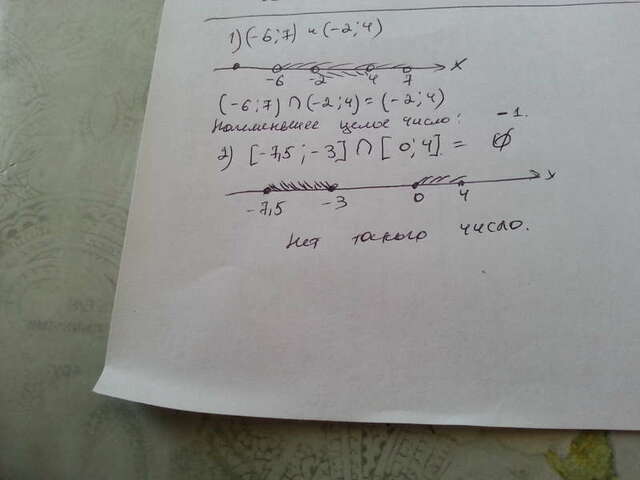 1) (-6;7) и (-2;4)
-6 -2 4 7 x
(-6;7) ∩ (-2;4) = (-2;4)
Наименьшее целое число: -1.
2) [-7,5; -3] ∩ [0;4] = ∅
-7,5 -3 0 4 x
Нет такого число.